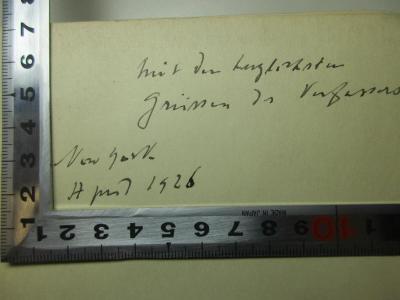 Mit den herzlichsten
Grüssen des Verfassers
New York
April 1926
MADE IN JAPAN
1 2 3 4 5 6 7 8 9 10
1 2 3 4 5 6 7